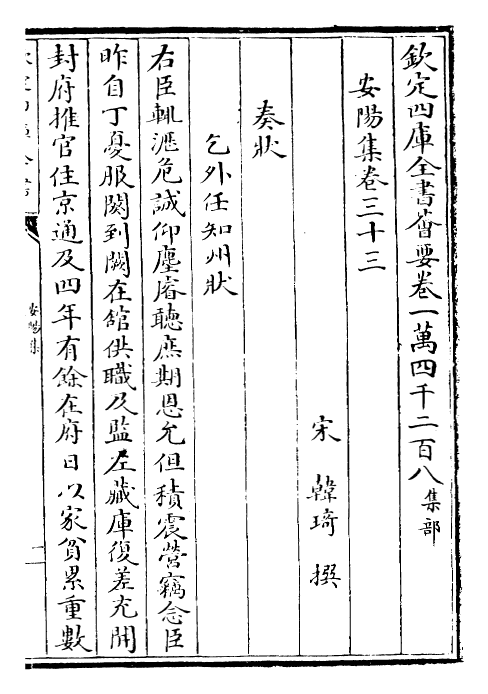 欽定四庫全書薈要卷一萬四千二百八集部
安陽集卷三十三
宋 韓琦 撰
奏狀
乞外任知州狀
右臣輒瀝危誠仰塵睿聽庶期恩允但積震營竊念臣
昨自丁憂服闋到闕在館供職及監左藏庫復差充開
封府推官住京通及四年有餘在府日以家貧累重數
安陽集